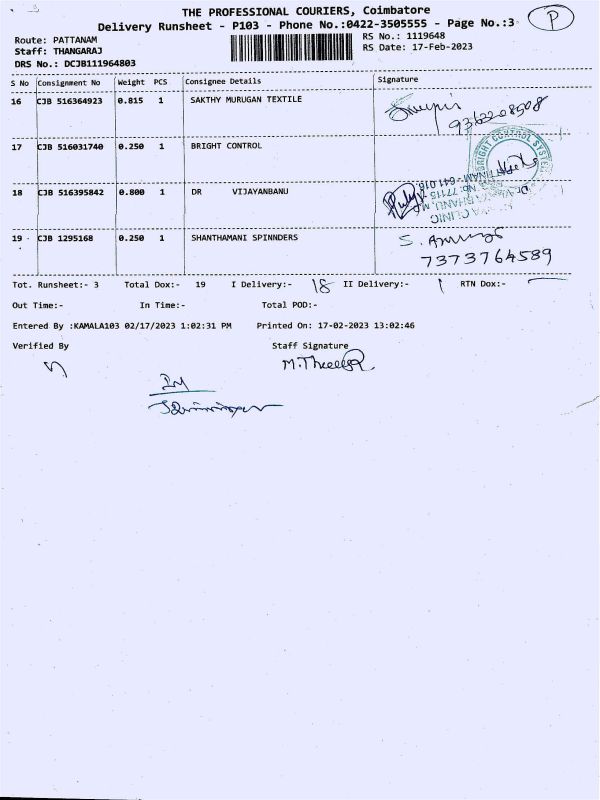 THE PROFESSIONAL COURIERS, Coimbatore
Delivery Runsheet - P103 - Phone No.:0422-3505555 - Page No.:3
P
Route: PATTANAM
RS No.: 1119648
Staff: THANGARAJ
RS Date: 17-Feb-2023
DRS No.: DCJB111964803
S No Consignment No Weight PCS Consignee Details Signature
16 CJB 516364923 0.815 1 SAKTHY MURUGAN TEXTILE
17 CJB 516031740 0.250 1 BRIGHT CONTROL
BRIGHT CONTROL SYSTEM
18 CJB 516395842 0.800 1 DR VIJAYANBANU
19 CJB 1295168 0.250 1 SHANTHAMANI SPINNDERS
7373764589
Tot. Runsheet:- 3 Total Dox:- 19 I Delivery:- 18 II Delivery:- 1 RTN Dox:-
Out Time:- In Time:- Total POD:-
Entered By :KAMALA103 02/17/2023 1:02:31 PM Printed On: 17-02-2023 13:02:46
Verified By Staff Signature